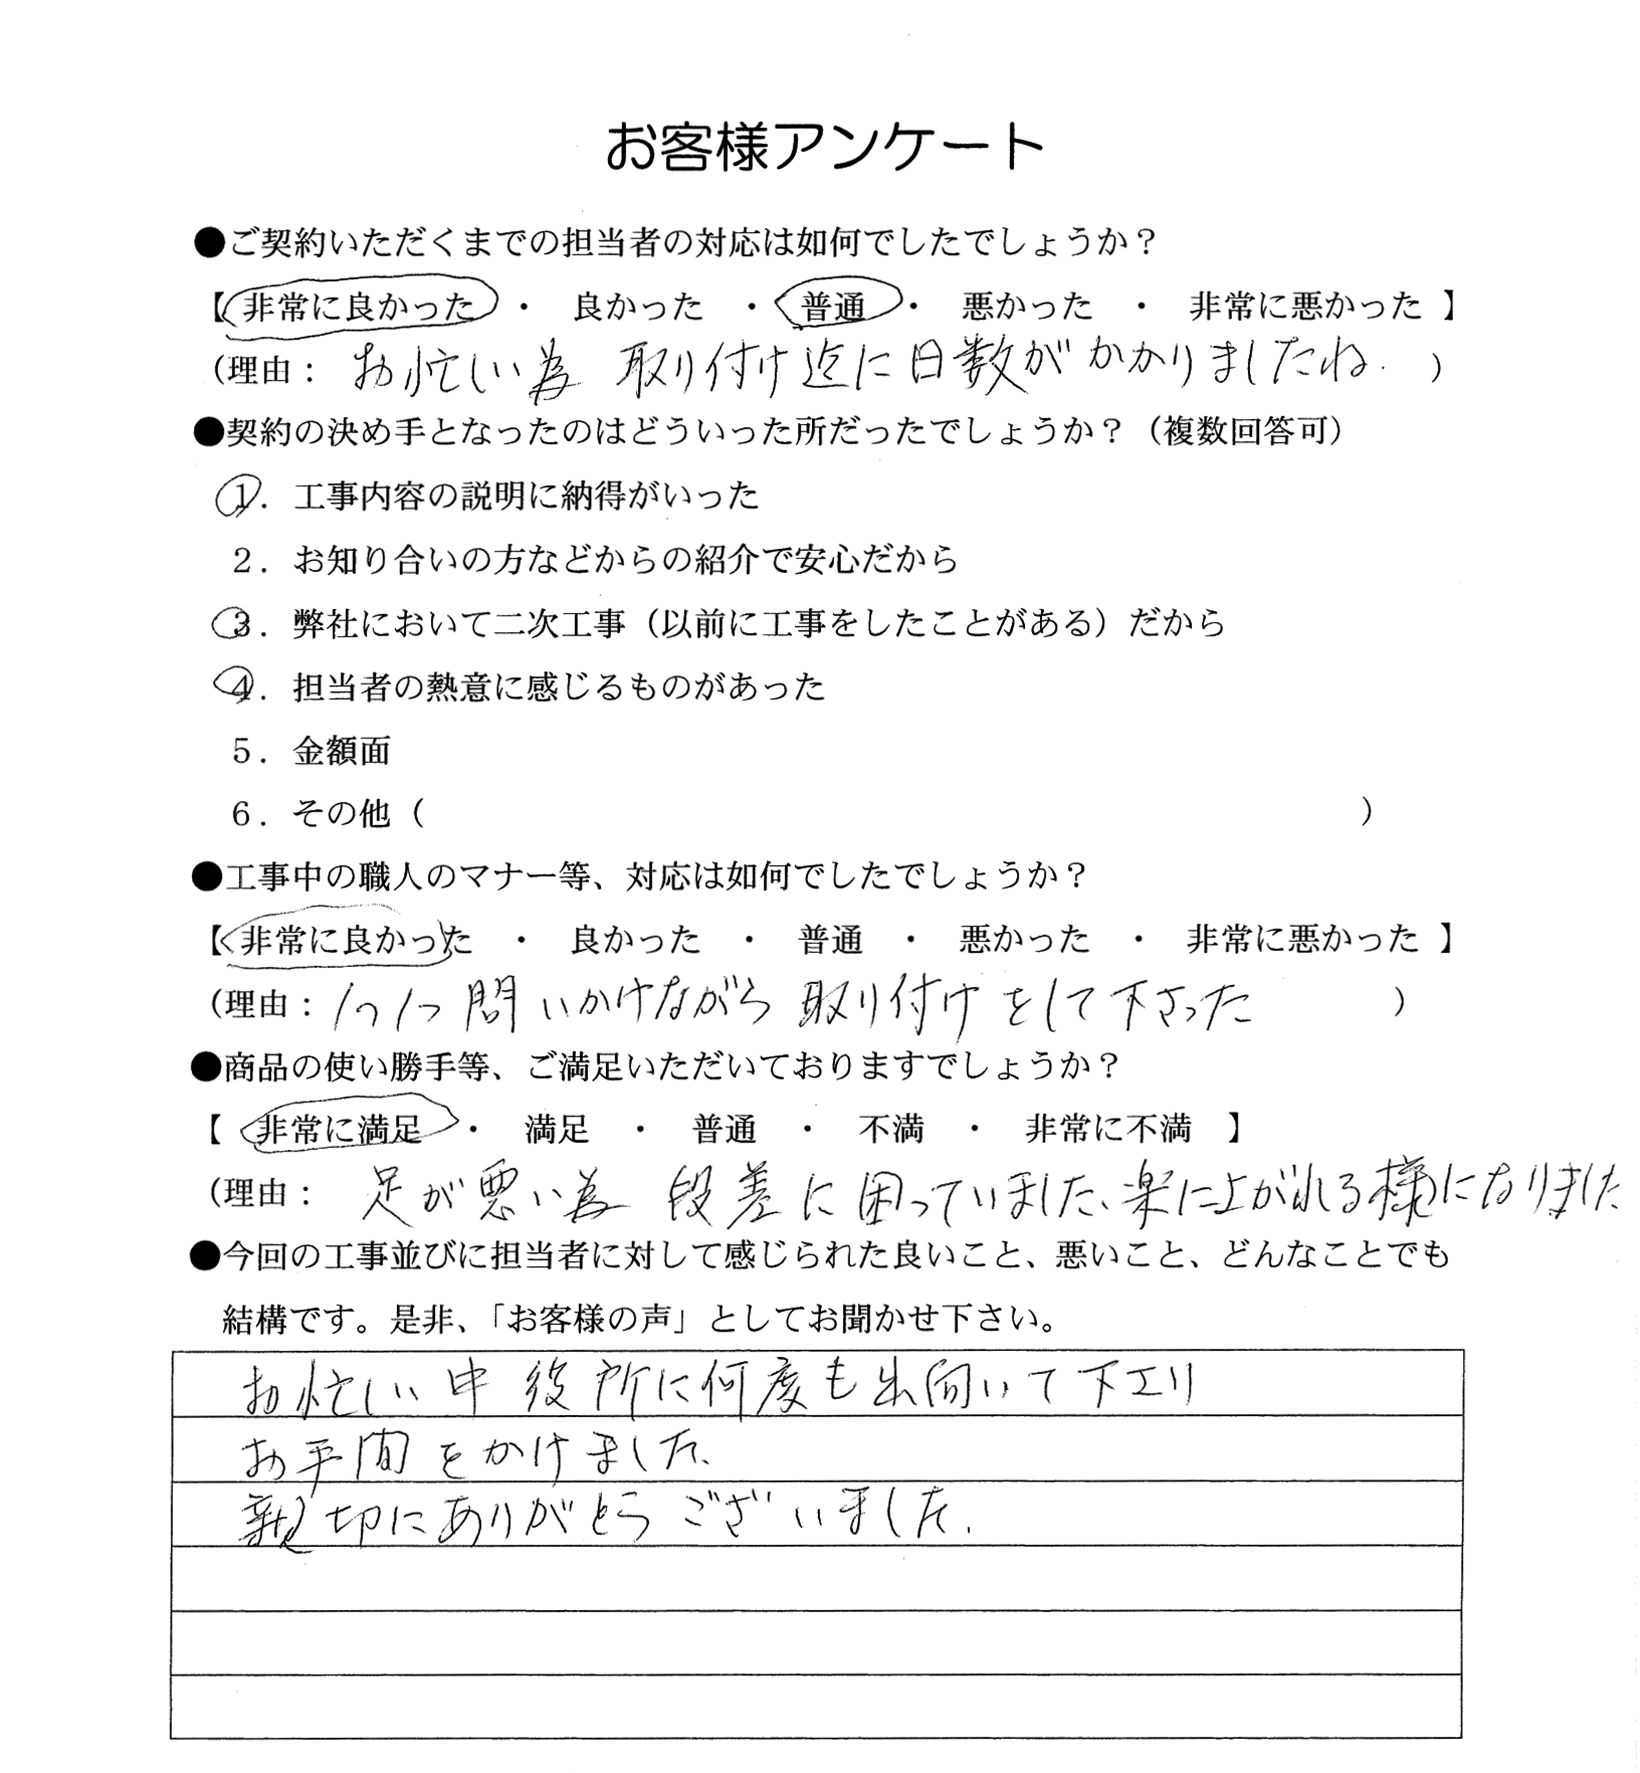 お客様アンケート
●ご契約いただくまでの担当者の対応は如何でしたでしょうか？
【 非常に良かった ・ 良かった ・ 普通 ・ 悪かった ・ 非常に悪かった 】
（理由： お忙しい為 取り付け迄に日数がかかりましたね. ）
●契約の決め手となったのはどういった所だったでしょうか？（複数回答可）
１．工事内容の説明に納得がいった
２．お知り合いの方などからの紹介で安心だから
３．弊社において二次工事（以前に工事をしたことがある）だから
４．担当者の熱意に感じるものがあった
５．金額面
６．その他（ ）
●工事中の職人のマナー等、対応は如何でしたでしょうか？
【 非常に良かった ・ 良かった ・ 普通 ・ 悪かった ・ 非常に悪かった 】
（理由： 1つ1つ問いかけながら 取り付けをして下さった ）
●商品の使い勝手等、ご満足いただいておりますでしょうか？
【 非常に満足 ・ 満足 ・ 普通 ・ 不満 ・ 非常に不満 】
（理由： 足が悪い為 段差に困っていました、楽に上がれる様になりました
●今回の工事並びに担当者に対して感じられた良いこと、悪いこと、どんなことでも
結構です。是非、「お客様の声」としてお聞かせ下さい。
お忙しい中 役所に何度も出向いて下エリ
お手間をかけました、
親切にありがとうございました.